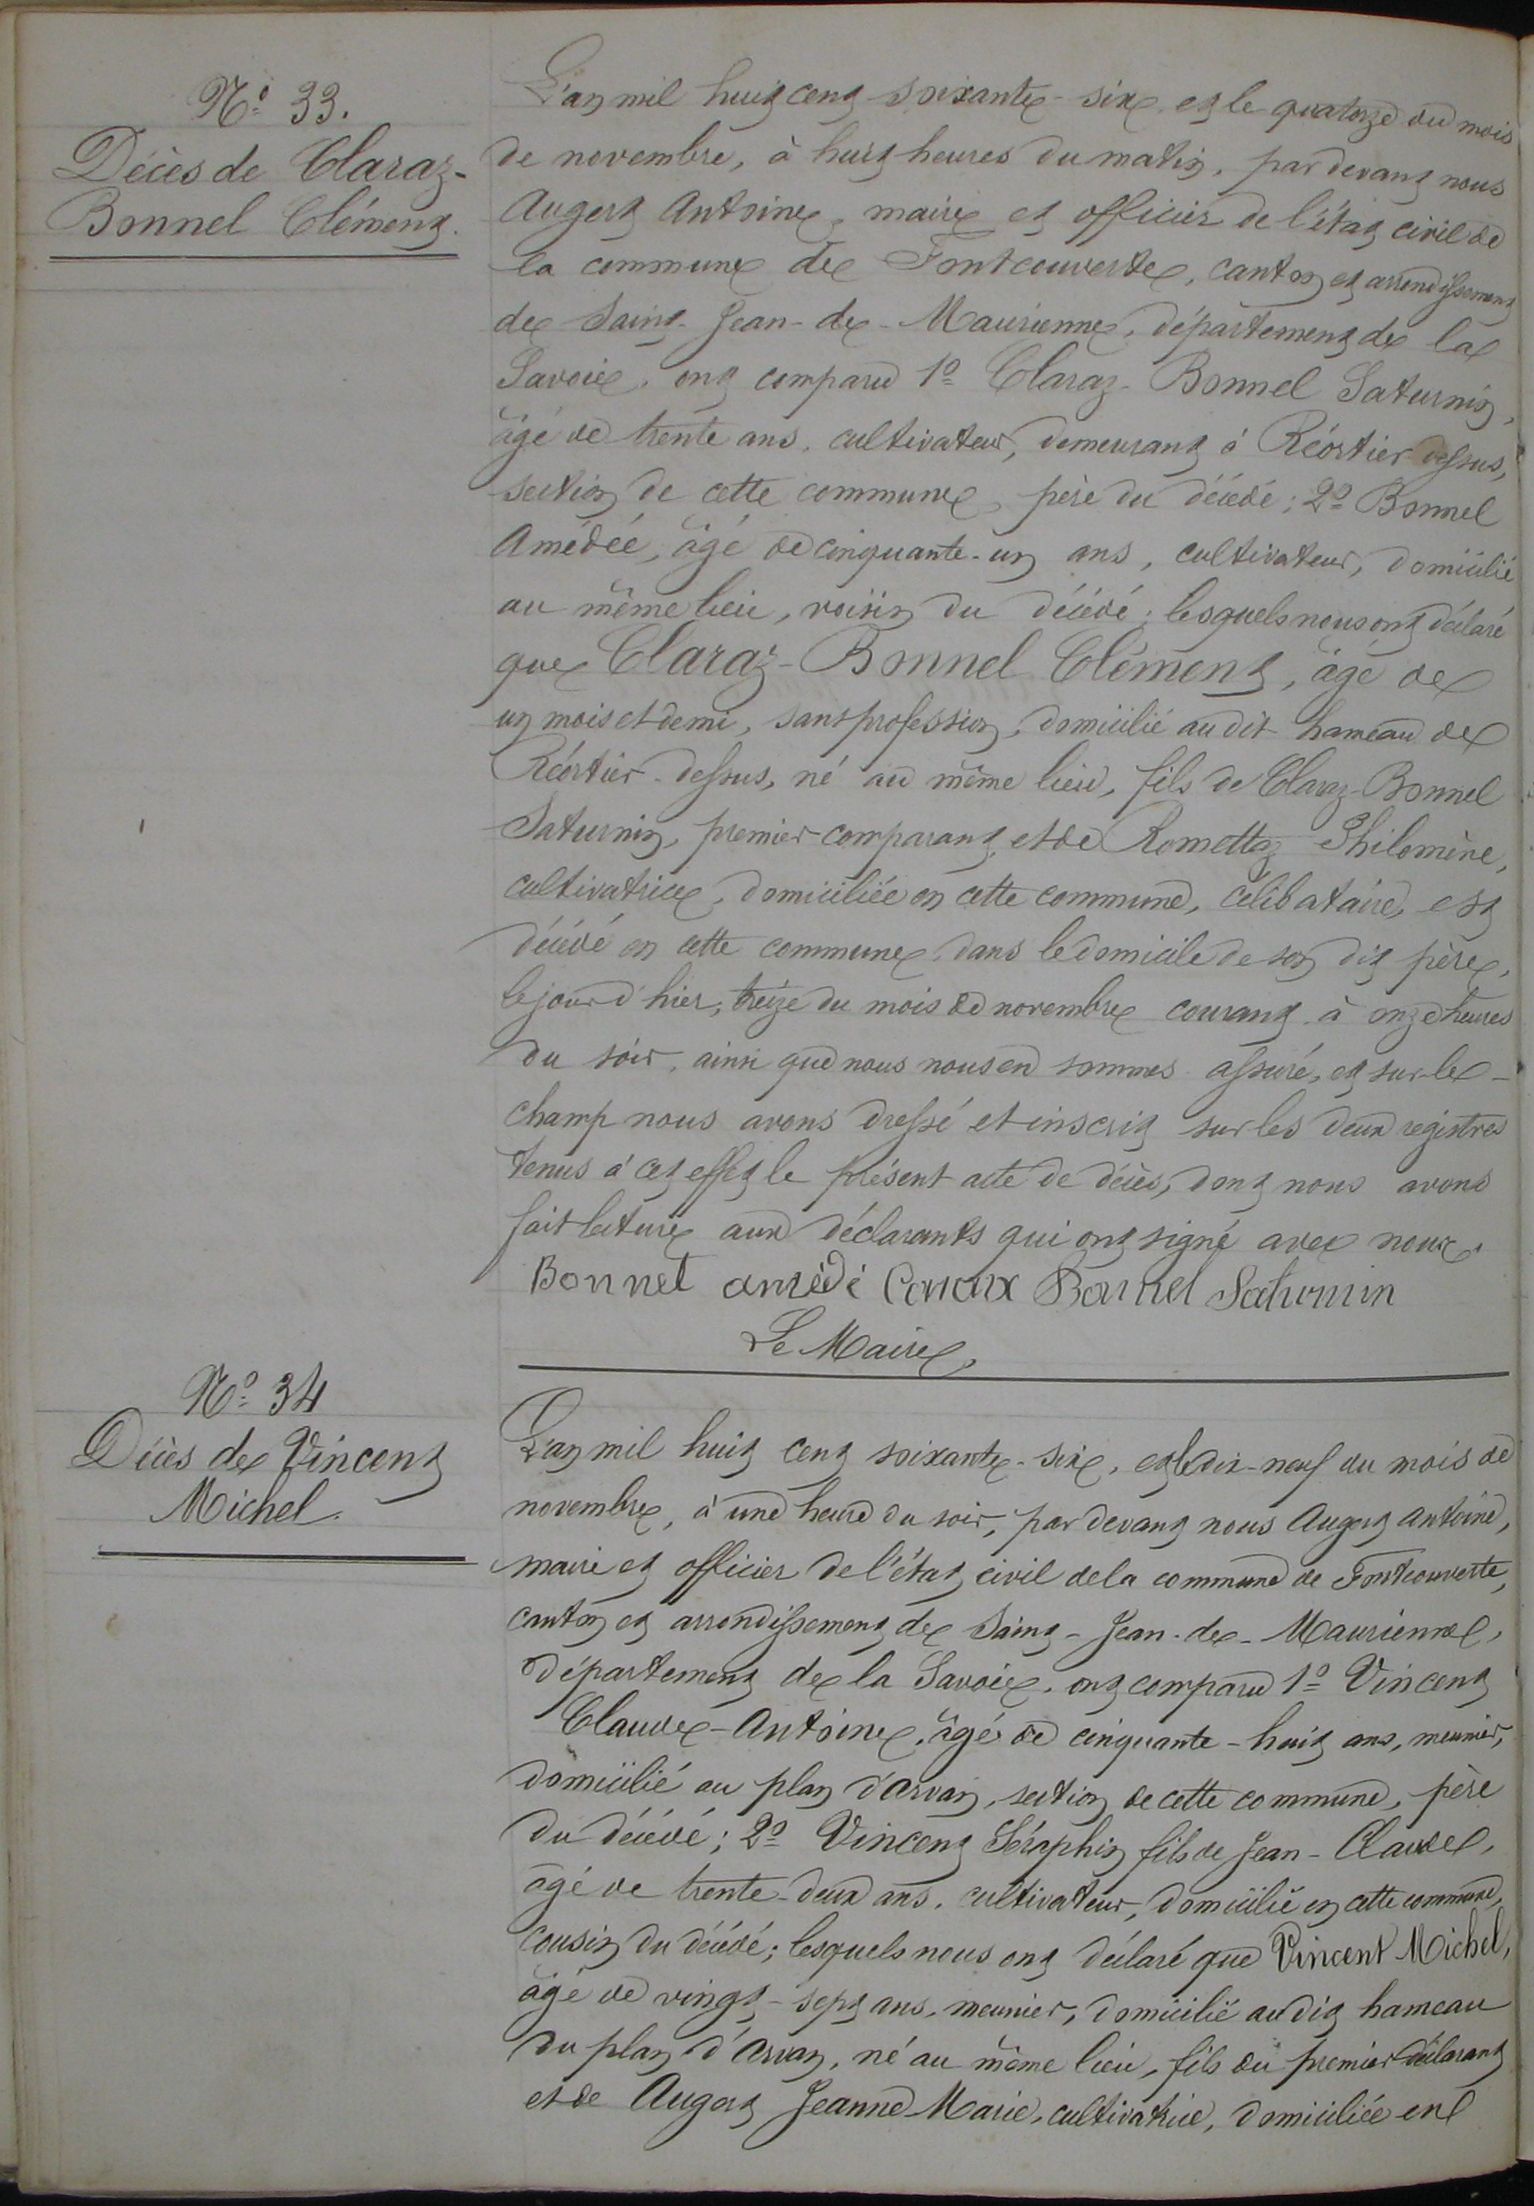 N.° 33.
Décès de Claraz-
Bonnel Clément.
L'an mil huit cent soixante-six et le quatorze du mois
de novembre, à huit heures du matin, par devant nous
Augert Antoine, maire et officier de l'état civil de
la commune de Fontcouverte, canton et arrondissement
de Saint-Jean-de-Maurienne, département de la
Savoie, ont comparu 1° Claraz-Bonnel Saturnin,
âgé de trente ans, cultivateur, demeurant à Réortier-dessus,
section de cette commune, père du décédé; 2° Bonnel
Amédée, âgé de cinquante-un ans, cultivateur, domicilié
au même lieu, voisin du décédé; lesquels nous ont déclaré
que Claraz-Bonnel Clément, âgé de
un mois et demi, sans profession, domicilié au dit hameau de
Réortier-dessus, né au même lieu, fils de Claraz-Bonnel
Saturnin, premier comparant, et de Romettaz Philomène,
cultivatrice, domiciliée en cette commune, célibataire, est
décédé en cette commune, dans le domicile de son dit père,
le jour d'hier, treize du mois de novembre courant à onze heures
du soir, ainsi que nous nous en sommes assuré, et sur-le-
champ nous avons dressé et inscrit sur les deux registres
tenus à cet effet le présent acte de décès, dont nous avons
fait lecture aux déclarants qui ont signé avec nous.
Bonnet amédé Bonnel Saturnin
Le Maire,
N.° 34
Décès de Vincent
Michel.
L'an mil huit cent soixante-six, et le dix-neuf du mois de
novembre, à une heure du soir, par devant nous Augert Antoine,
maire et officier de l'état civil de la commune de Fontcouverte,
canton et arrondissement de Saint-Jean-de-Maurienne,
département de la Savoie, ont comparu 1° Vincent
Claude-Antoine, âgé de cinquante-huit ans, meunier,
domicilié au plan d'Arvan, section de cette commune, père
du décédé; 2° Vincent Séraphin fils de Jean-Claude,
âgé de trente-deux ans, cultivateur, domicilié en cette commune,
cousin du décédé; lesquels nous ont déclaré que Vincent Michel,
âgé de vingt-sept ans, meunier, domicilié au dit hameau
du plan d'Arvan, né au même lieu, fils du premier déclarant
et de Augert Jeanne-Marie, cultivatrice, domiciliée en